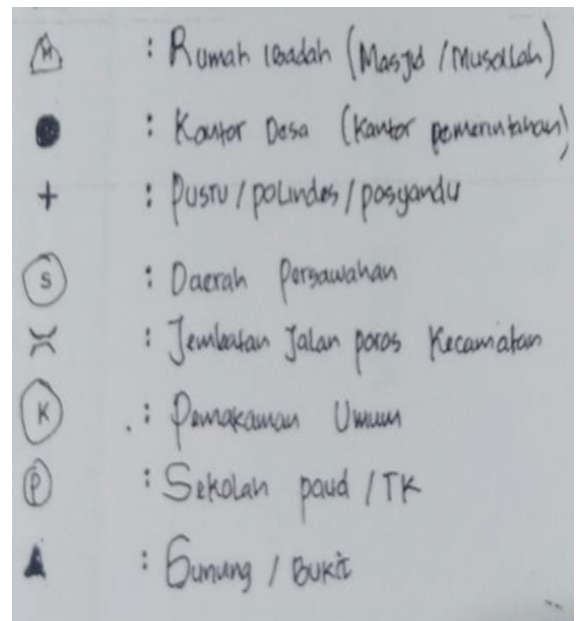 M : Rumah Ibadah (Masjid / Musallah)
: Kantor Desa (Kantor pemerintahan)
+ : Pustu / polindes / posyandu
S : Daerah Persawahan
: Jembatan Jalan poros Kecamatan
K : Pemakaman Umum
P : Sekolah paud / TK
: Gunung / Bukit